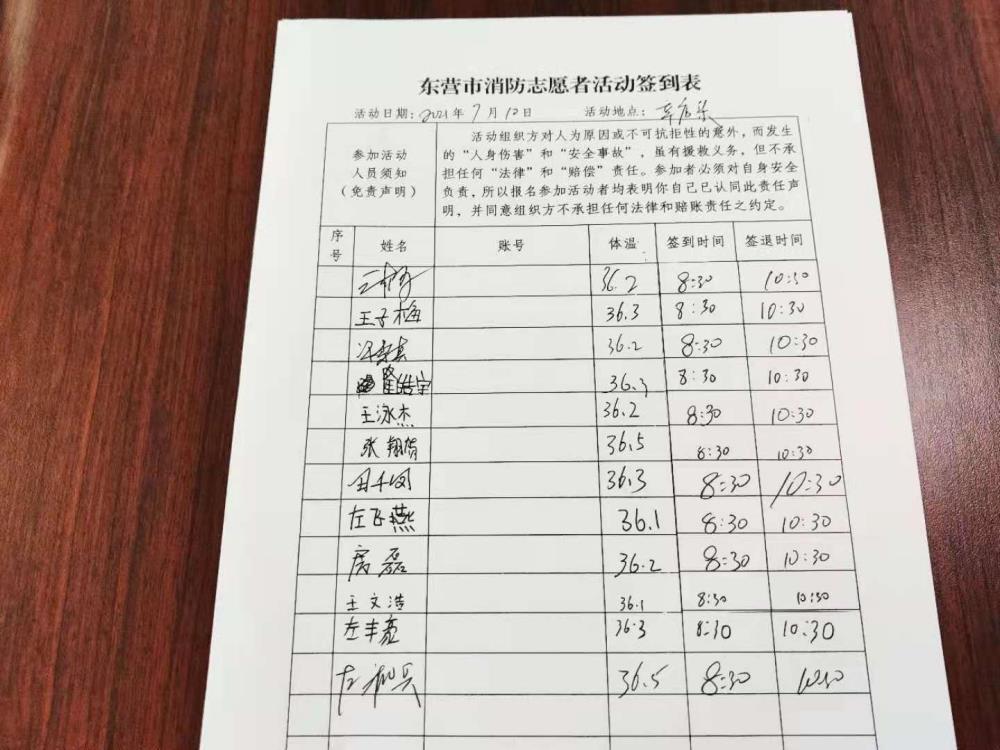 东营市消防志愿者活动签到表
活动日期：2021年7月10日 活动地点：
参加活动
人员须知
（免责声明）
活动组织方对人为原因或不可抗拒性的意外，而发生
的“人身伤害”和“安全事故”，虽有援救义务，但不承
担任何“法律”和“赔偿”责任。参加者必须对自身安全
负责，所以报名参加活动者均表明你自己已认同此责任声
明，并同意组织方不承担任何法律和赔账责任之约定。
序号 姓名 账号 体温 签到时间 签退时间
36.2 8:30 10:30
王子梅 36.3 8:30 10:30
36.2 8:30 10:30
皓宇 36.3 8:30 10:30
王泳杰 36.2 8:30 10:30
张翔 36.5 8:30 10:30
田千 36.3 8:30 10:30
左飞燕 36.1 8:30 10:30
房磊 36.2 8:30 10:30
王文浩 36.1 8:30 10:30
左丰 36.3 8:30 10:30
左 兵 36.5 8:30 1030